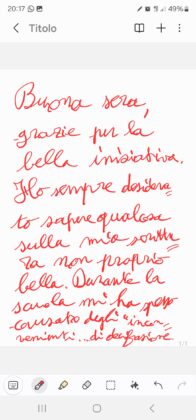 20:17
61%
Titolo
Buona sera,
grazie per la
bella iniziativa.
Ho sempre desidera=
to sapere qualcosa
sulla mia scrittu=
ra non proprio
bella. Durante la
scuola mi ha spesso
causato degli "incon=
venienti"... di decifrazione
1/1